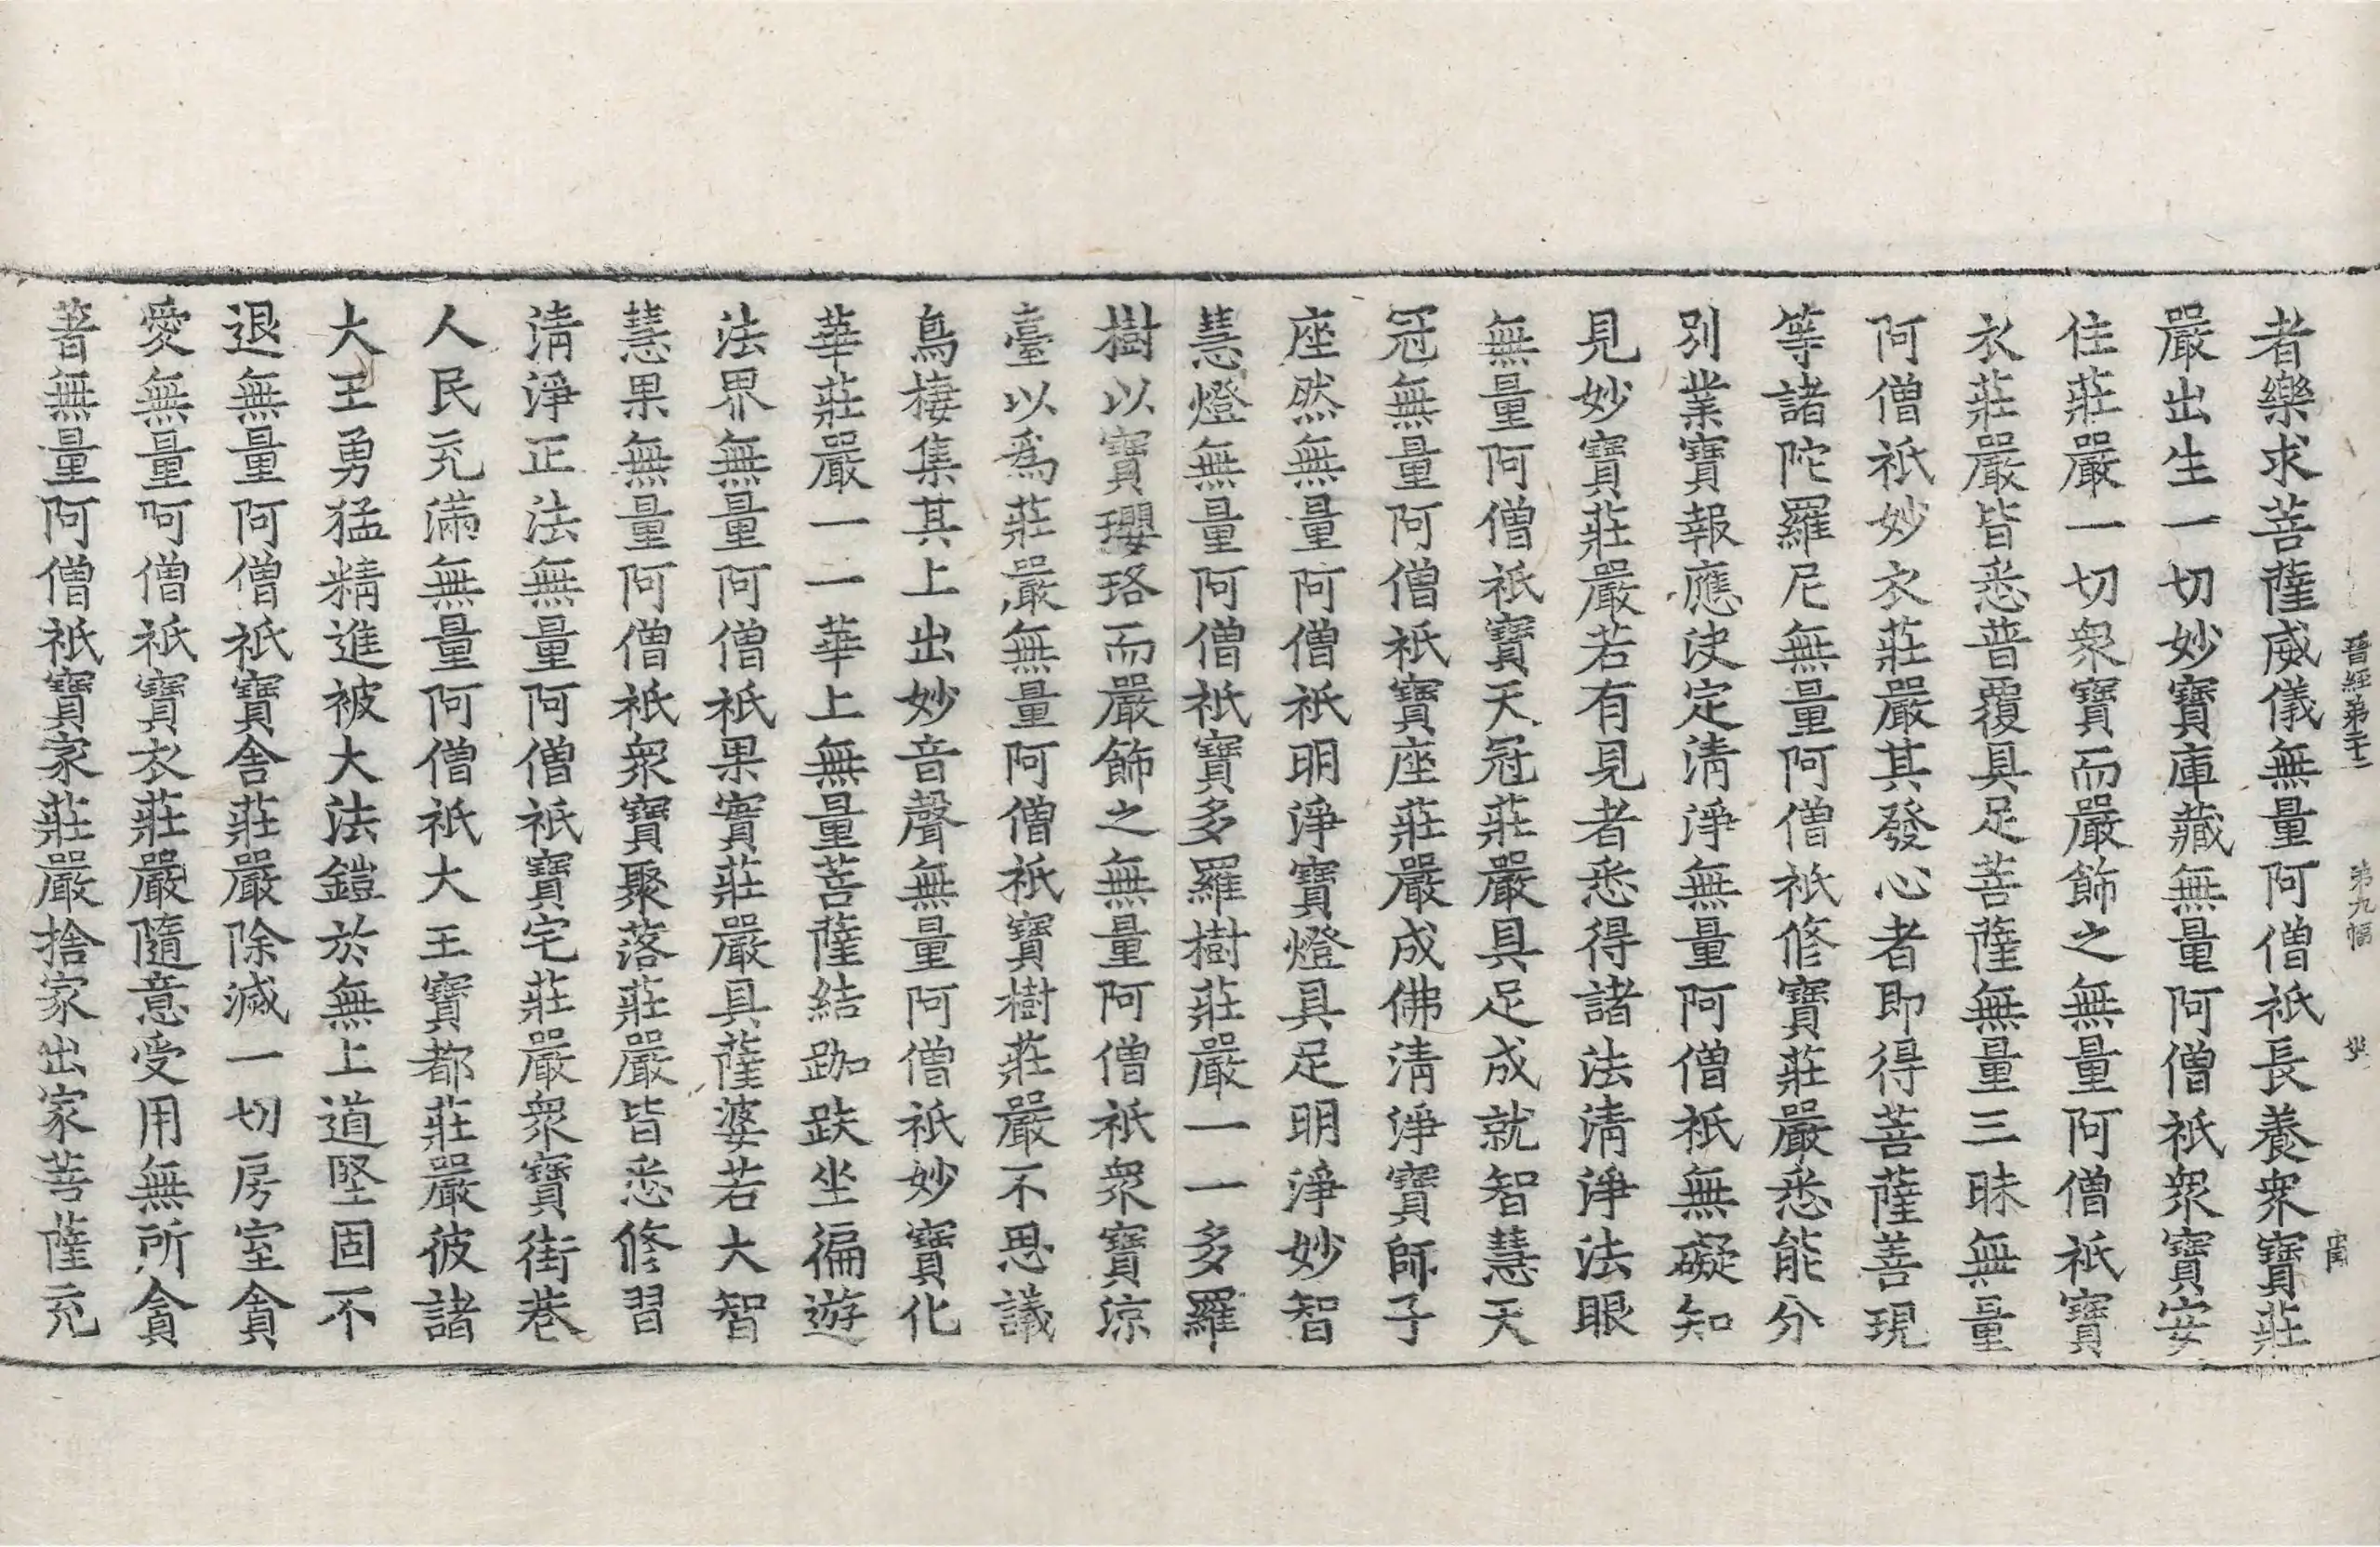 晉經第二十二 第九幅
者樂求菩薩威儀無量阿僧祇長養衆寶莊
嚴出生一切妙寶庫藏無量阿僧祇衆寶安
住莊嚴一切衆寶而嚴飾之無量阿僧祇寶
衣莊嚴皆悉普覆具足菩薩無量三昧無量
阿僧祇妙衣莊嚴其發心者即得菩薩善現
等諸陀羅尼無量阿僧祇修寶莊嚴悉能分
別業寶報應決定清淨無量阿僧祇無礙知
見妙寶莊嚴若有見者悉得諸法清淨法眼
無量阿僧祇寶天冠莊嚴具足成就智慧天
冠無量阿僧祇寶座莊嚴成佛清淨寶師子
座然無量阿僧祇明淨寶燈具足明淨妙智
慧燈無量阿僧祇寶多羅樹莊嚴一一多羅
樹以寶瓔珞而嚴飾之無量阿僧祇衆寶涼
臺以爲莊嚴無量阿僧祇寶樹莊嚴不思議
鳥棲集其上出妙音聲無量阿僧祇妙寶化
華莊嚴一一華上無量菩薩結跏趺坐徧遊
法界無量阿僧祇果實莊嚴具薩婆若大智
慧果無量阿僧祇衆寶聚落莊嚴皆悉修習
淸淨正法無量阿僧祇寶宅莊嚴衆寶街巷
人民充滿無量阿僧祇大王寶都莊嚴彼諸
大王勇猛精進被大法鎧於無上道堅固不
退無量阿僧祇寶舍莊嚴除滅一切房室貪
愛無量阿僧祇寶衣莊嚴隨意受用無所貪
著無量阿僧祇寶家莊嚴捨家出家菩薩充